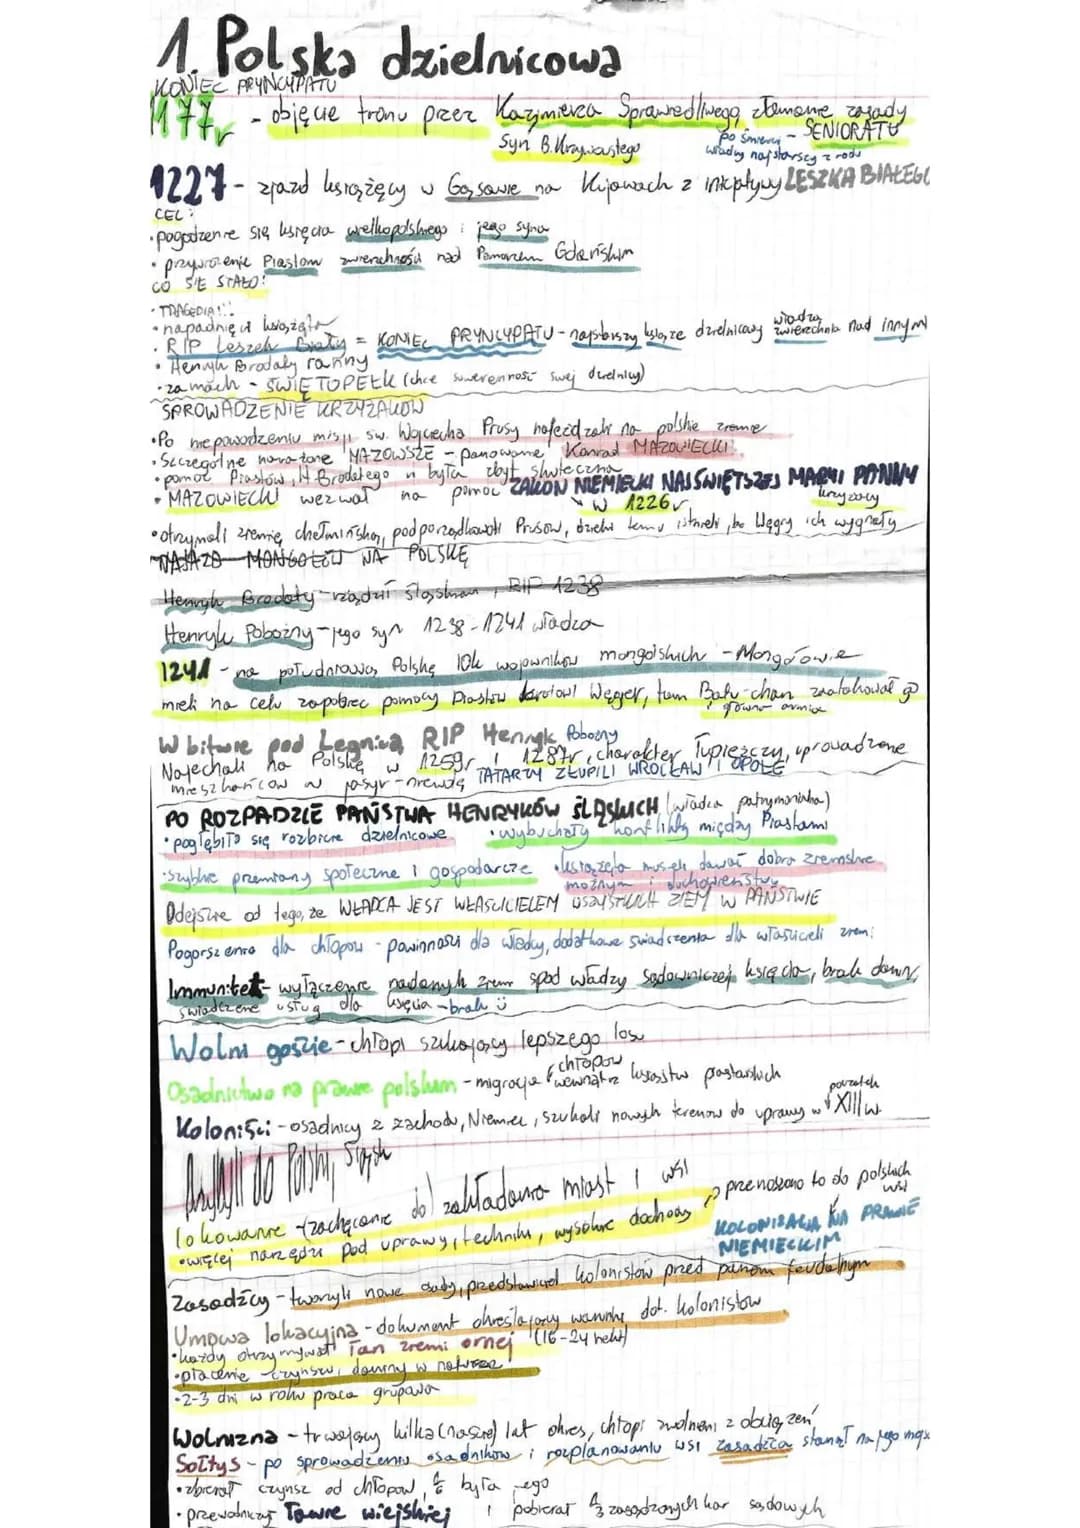 1. Polska dzielnicowa
KONIEC PRYNCYPATU
1177r - objęcie tronu przez Kazimierza Sprawiedliwego, złamanie zasady
Syn B. Krzywoustego po śmierci - SENIORATU
władny najstarszy z rodu
1227 - zjazd książęcy w Gąsawie na Kujawach z inicjatywy LESZKA BIAŁEGO
CEL:
• pogodzenie się księcia wielkopolskiego i jego syna
• przywrócenie Piastom zwierzchności nad Pomorzem Gdańskim
CO SIĘ STAŁO:
• TRAGEDIA!!!
• napadnięci książęta
• RIP Leszek Biały = KONIEC PRYNCYPATU - najstarszy książe dzielnicowy władzą zwierzchnia nad innymi
• Henryk Brodaty ranny
• zamach - ŚWIĘTOPEŁK (chce suwerenność swej dzielnicy)
SPROWADZENIE KRZYŻAKÓW
• Po niepowodzeniu misji św. Wojciecha Prusy najeżdżali na polskie ziemie
• Szczególne narażone MAZOWSZE - panowanie Konrad MAZOWIECKI
• pomoc Piastów, H. Brodatego n była zbyt skuteczna
• MAZOWIECKI wezwał na pomoc ZAKON NIEMIECKI NAJŚWIĘTSZEJ MARYI PANNY
w 1226r krzyżacy
• otrzymali ziemię chełmińską, podporządkowali Prusów, dzięki temu istnieli, bo Węgry ich wygnały
NAJAZD MONGOŁÓW NA POLSKĘ
Henryk Brodaty - rządził śląskiem, RIP 1238
Henryk Pobożny - jego syn 1238-1241 władca
1241 - na południową Polskę 10k wojowników mongolskich - Mongołowie
mieli na celu zapobiec pomocy Piastów karolowi Węgier, tam Batu-chan zaatakował go
i główna armia
W bitwie pod Legnicą RIP Henryk Pobożny
Najechali na Polskę w 1259r i 1287r, charakter łupieżczy, uprowadzone
mieszkańców w jasyr - niewola TATARZY ZŁUPILI WROCŁAW I OPOLE
PO ROZPADZIE PAŃSTWA HENRYKÓW ŚLĄSKICH (władza patrymonialna)
• pogłębiło się rozbicie dzielnicowe • wybuchały konflikty między Piastami
• szybkie przemiany społeczne i gospodarcze • książęta musieli dawać dobra ziemskie
możnym i duchowieństwu
Odejście od tego, że WŁADCA JEST WŁAŚCICIELEM WSZYSTKICH ZIEM W PAŃSTWIE
Pogorszenie dla chłopów - powinności dla władcy, dodatkowe świadczenia dla właścicieli ziemi
Immunitet - wyłączenie nadanych ziem spod władzy sądowniczej księcia, brak daniny,
świadczenie usług dla księcia - brak ü
Wolni goście - chłopi szukający lepszego losu
Osadnictwo na prawie polskim - migracje chłopów wewnątrz księstw piastowskich
Koloniści - osadnicy z zachodu, Niemiec, szukali nowych terenów do uprawy w początek XIII w.
Przybyli do Polski, Śląsk
lokowanie (zachęcanie do) zakładania miast i wsi przenoszono to do polskich wsi
• więcej narzędzi pod uprawy, technika, wysokie dochody KOLONIZACJA NA PRAWIE
NIEMIECKIM
Zasadźcy - tworzyli nowe osady, przedstawiciel kolonistów przed panem feudalnym
Umowa lokacyjna - dokument określający warunki dot. kolonistów
• każdy otrzymywał łan ziemi ornej (16-24 hekt)
• płacenie czynszu, daniny w naturze
• 2-3 dni w roku praca grupowa
Wolnizna - trwający kilka(naście) lat okres, chłopi zwolnieni z obciążeń
Sołtys - po sprowadzeniu osadników i rozplanowaniu wsi zasadźca stanął na jego miejscu
• zbierał czynsz od chłopów, 1/6 była jego
• przewodniczył Ławie wiejskiej i pobierał 1/3 zasądzonych kar sądowych